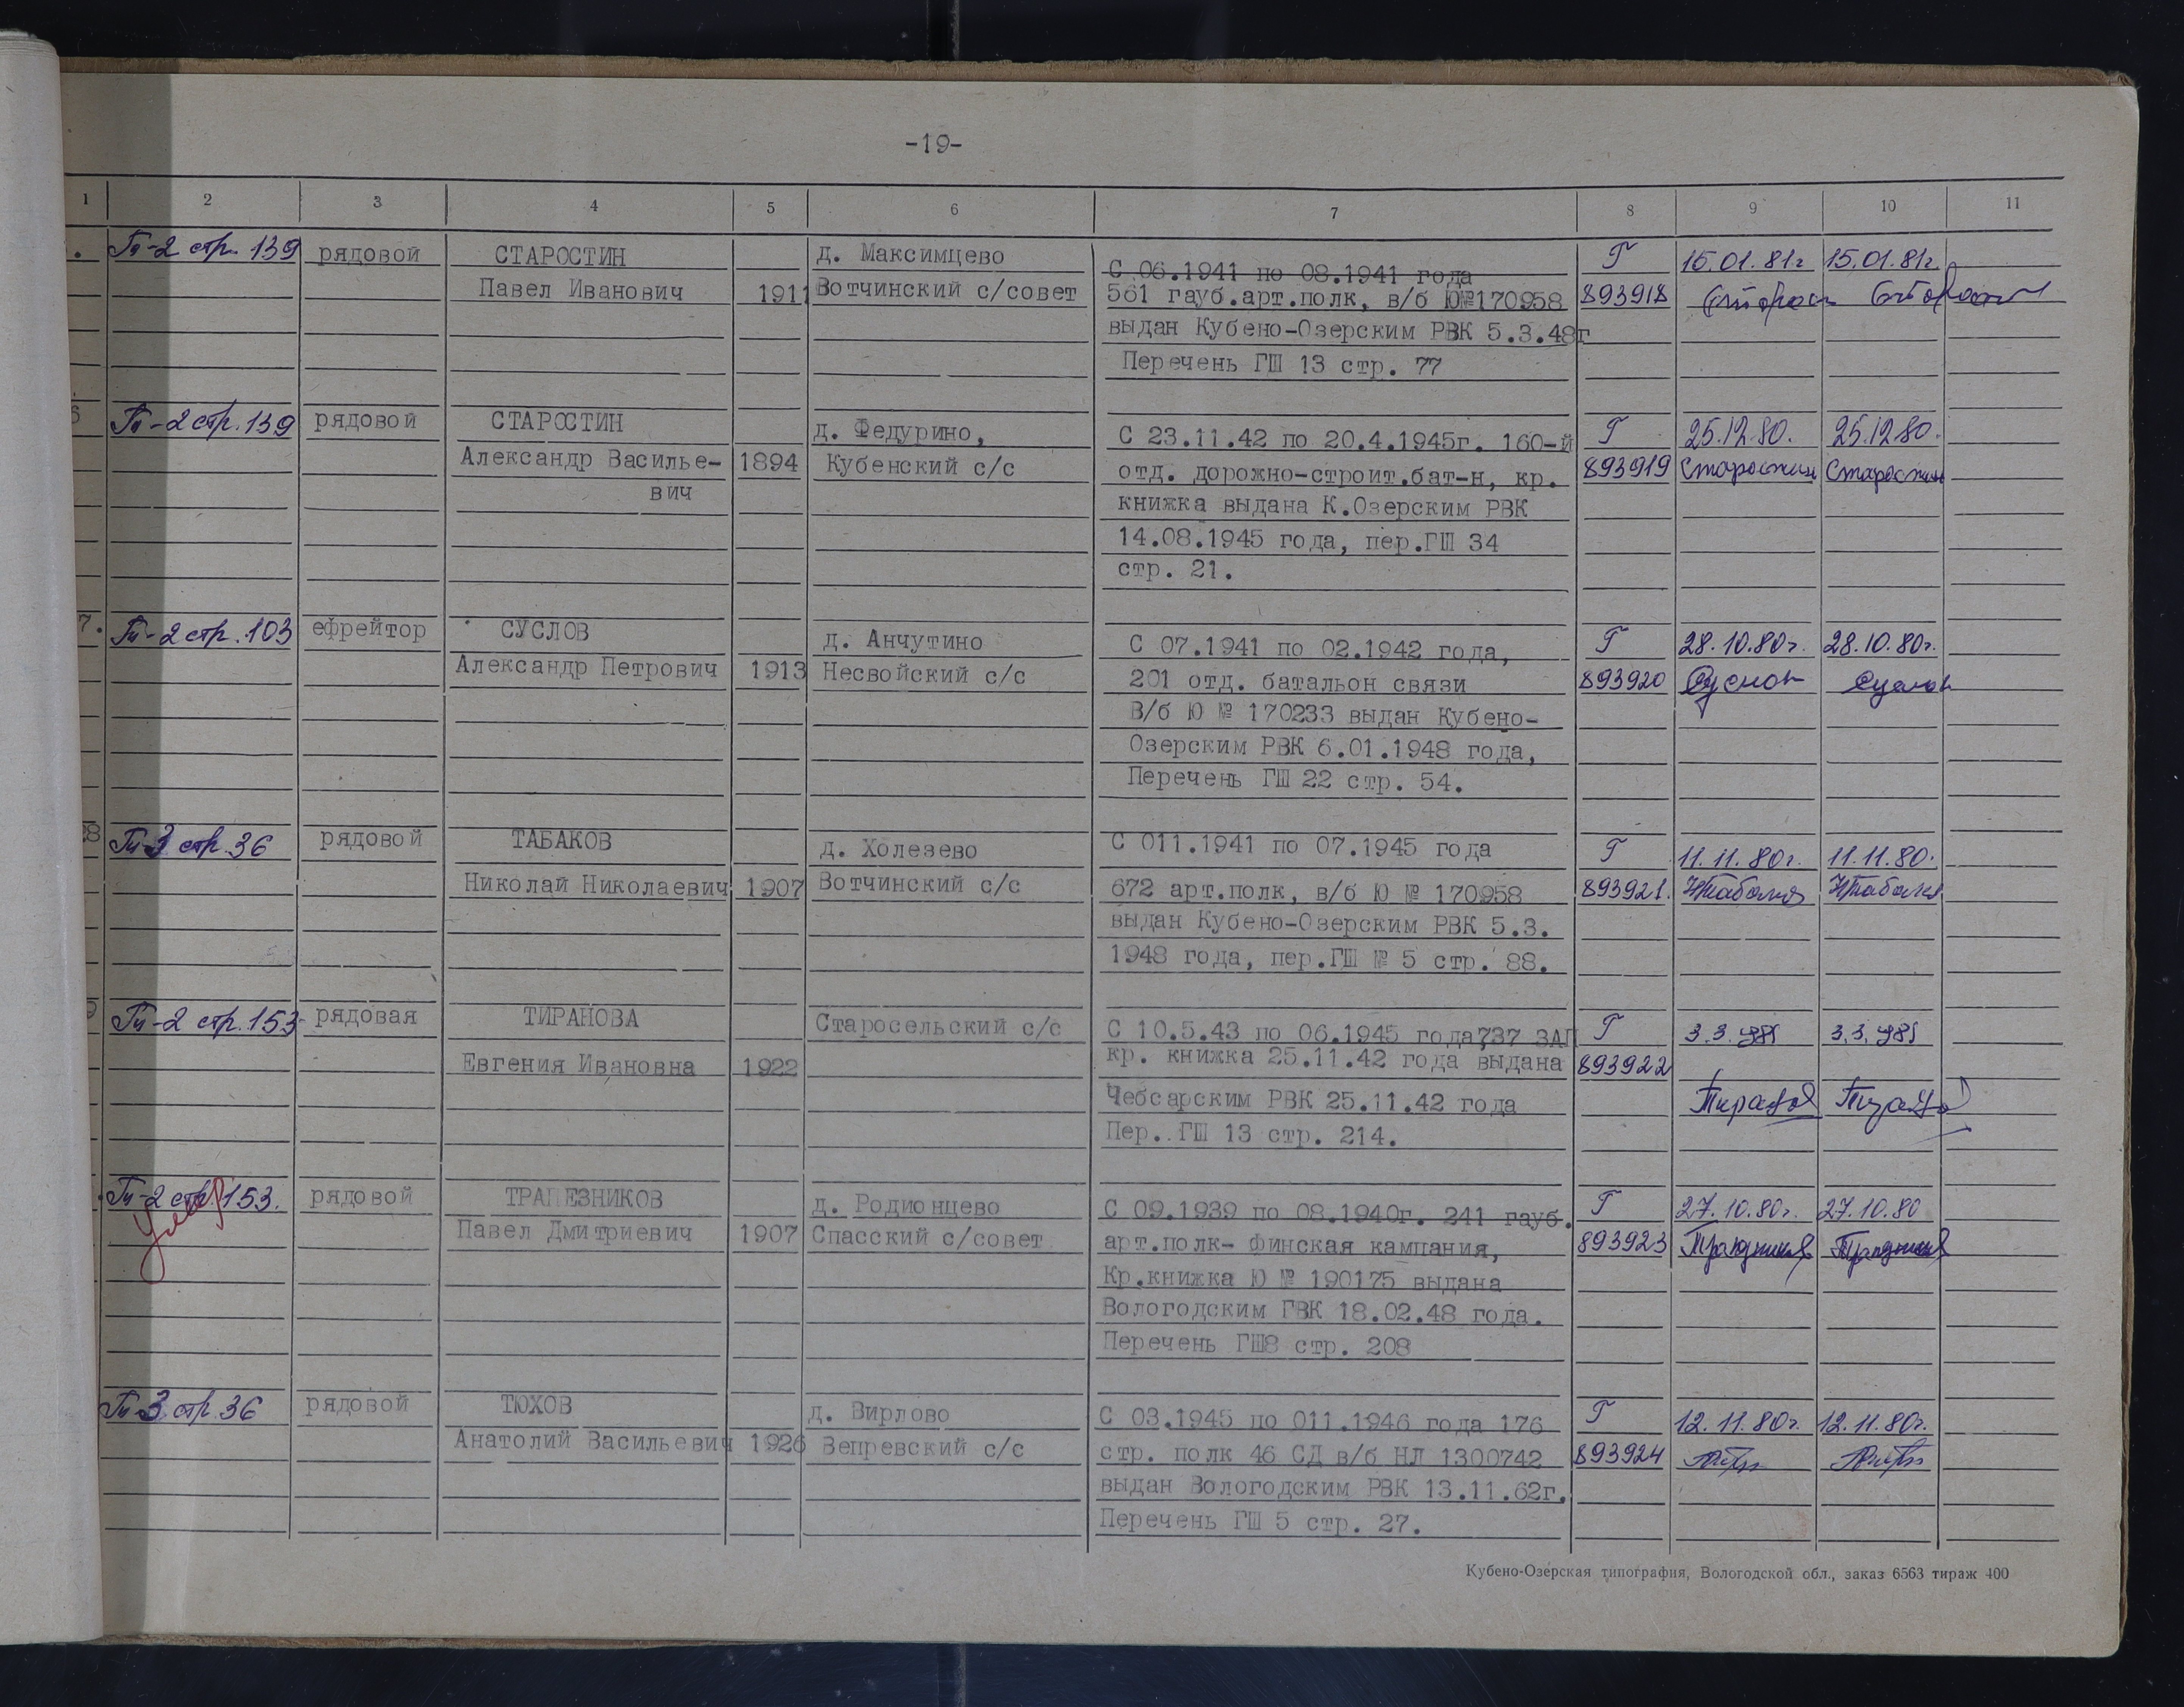 -19-
1 2 3 4 5 6 7 8 9 10 11
. Гт-2 стр. 139 рядовой СТАРОСТИН д. Максимцево С 06.1941 по 08.1941 года Г 15.01.81г 15.01.81г.
Павел Иванович 1911 Вотчинский с/совет 561 гауб.арт.полк, в/б Ю№170958 893918
выдан Кубено-Озерским РВК 5.3.48г
Перечень ГШ 13 стр. 77
6 Гт-2 стр. 139 рядовой СТАРОСТИН д. Федурино, С 23.11.42 по 20.4.1945г. 160-й Г 25.12.80. 25.12.80.
Александр Василье- 1894 Кубенский с/с отд. дорожно-строит.бат-н, кр. 893919 Старостин Старостин
вич книжка выдана К.Озерским РВК
14.08.1945 года, пер.ГШ 34
стр. 21.
7. Гт-2 стр. 103 ефрейтор СУСЛОВ д. Анчутино С 07.1941 по 02.1942 года, Г 28.10.80г. 28.10.80г.
Александр Петрович 1913 Несвойский с/с 201 отд. батальон связи 893920 Суслов Суслов
В/б Ю № 170233 выдан Кубено-
Озерским РВК 6.01.1948 года,
Перечень ГШ 22 стр. 54.
28 Гт-3 стр. 36 рядовой ТАБАКОВ д. Холезево С 011.1941 по 07.1945 года Г 11.11.80г. 11.11.80.
Николай Николаевич 1907 Вотчинский с/с 672 арт.полк, в/б Ю № 170958 893921.
выдан Кубено-Озерским РВК 5.3.
1948 года, пер.ГШ № 5 стр. 88.
9 Гт-2 стр. 153 рядовая ТИРАНОВА Старосельский с/с С 10.5.43 по 06.1945 года,737 ЗАП Г 3.3.981 3.3.981
Евгения Ивановна 1922 кр. книжка 25.11.42 года выдана 893922
Чебсарским РВК 25.11.42 года
Пер. ГШ 13 стр. 214.
Гт-2 стр. 153. рядовой ТРАПЕЗНИКОВ д. Родионцево С 09.1939 по 08.1940г. 241 гауб. Г 27.10.80г. 27.10.80
Умер Павел Дмитриевич 1907 Спасский с/совет арт.полк- Финская кампания, 893923
Кр.книжка Ю № 190175 выдана
Вологодским ГВК 18.02.48 года.
Перечень ГШ8 стр. 208
Гт-3 стр. 36 рядовой ТЮХОВ д. Вирлово С 03.1945 по 011.1946 года 176 Г 12.11.80г. 12.11.80г.
Анатолий Васильевич 1926 Вепревский с/с стр. полк 46 СД в/б НЛ 1300742 893924
выдан Вологодским РВК 13.11.62г.
Перечень ГШ 5 стр. 27.
Кубено-Озерская типография, Вологодской обл., заказ 6563 тираж 400